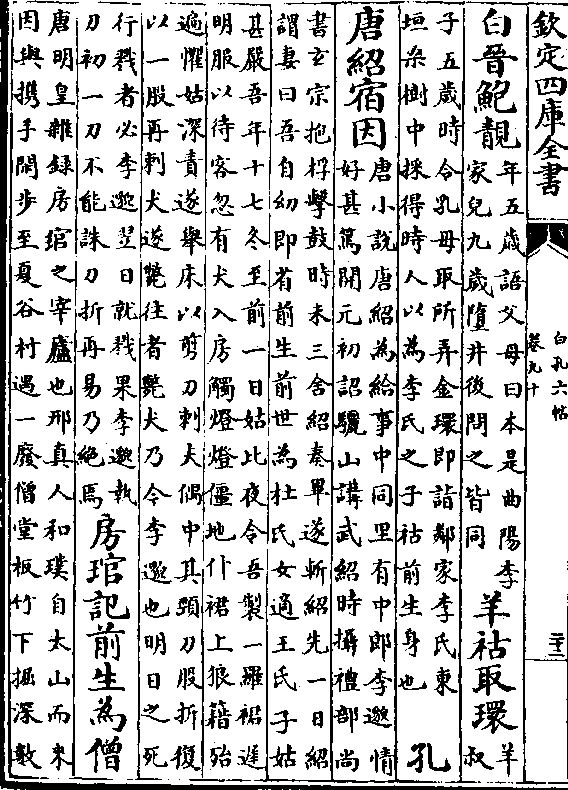 欽定四庫全書
白孔六帖
卷九十
白晉鮑靚
年五歲語父母曰本是曲陽李
家兒九歲墮井後問之皆同
羊祜取環
羊
叔
子五歲時令孔母取所弄金環即詣鄰家李氏東
垣桒樹中採得時人以為李氏之子祜前生身也
孔
唐紹宿因
唐小說唐紹為給事中同里有中郎李邈情
好甚篤開元初詔驪山講武紹時攝禮部尚
書玄宗抱桴擊鼓時未三舍紹奏畢遂斬紹先一日紹
謂妻曰吾自幼即省前生前世為杜氏女適王氏子姑
甚嚴吾年十七冬至前一日姑比夜令吾製一羅裙遲
明服以待客忽有犬入房觸燈燈僵地仆裙上狼籍殆
遍懼姑深責遂舉床以剪刀刺犬偶中其頸刀股折復
以一股再刺犬遂斃往者斃犬乃今李邈也明日之死
行戮者必李邈翌日就戮果李邈執
刀初一刀不能誅刀折再易乃絕焉
房琯記前生為僧
唐明皇雜録房琯之宰廬也邢真人和璞自太山而來
因與携手閒步至夏谷村遇一廢僧堂板竹下掘深數